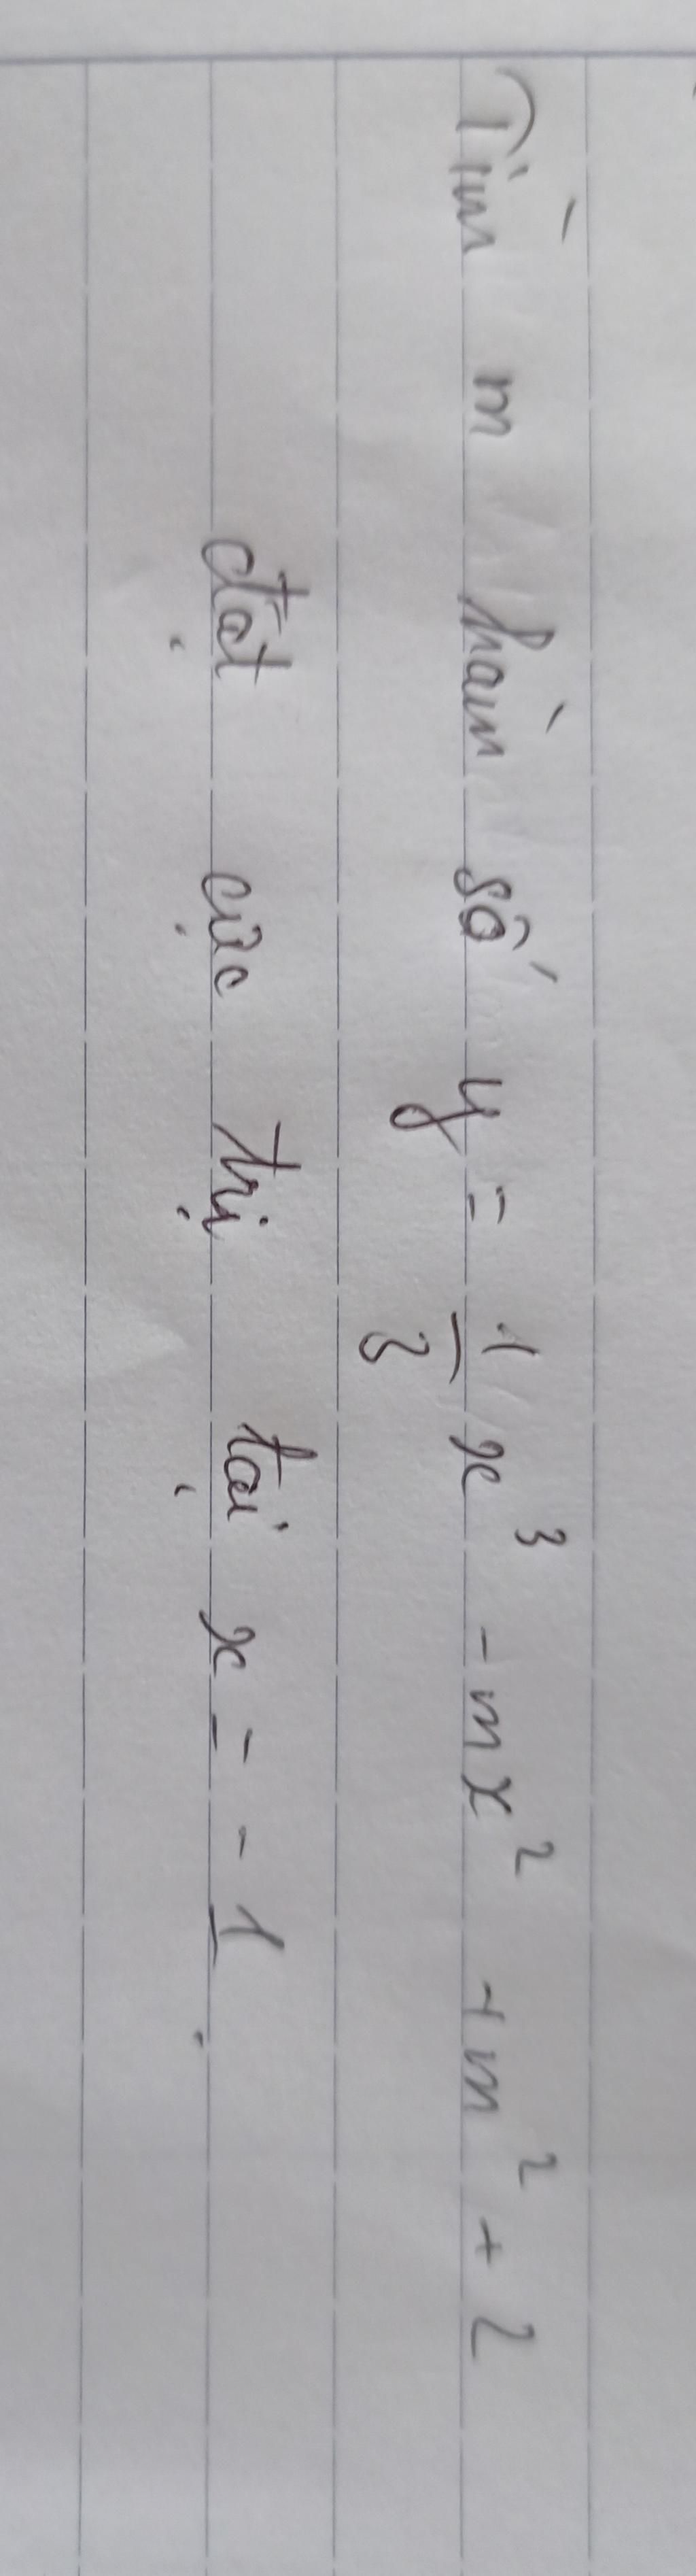 Tìm m hàm số y = 1/3 x³ - mx² + m² + 2
đạt cực trị tại x = -1.